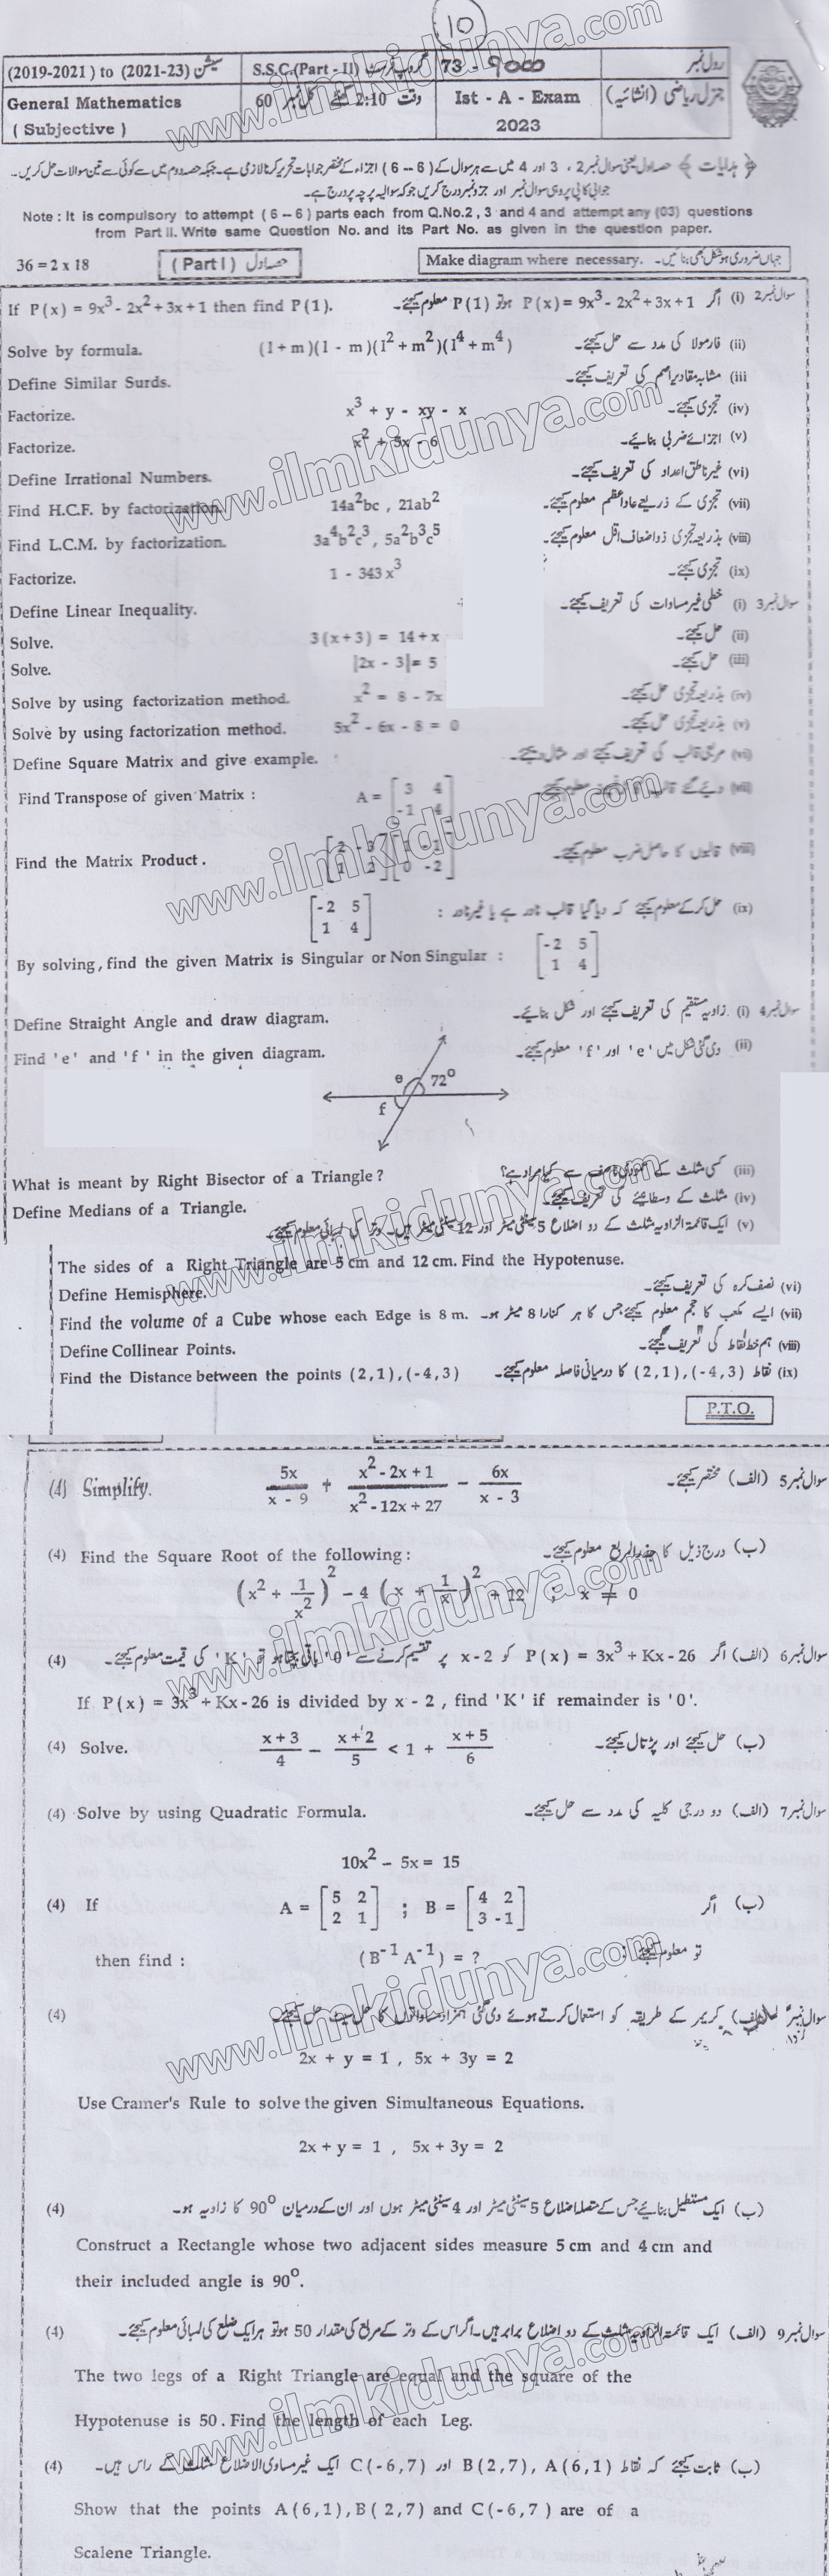 10
(2019-2021) to (2021-23) سیشن S.S.C.(Part - II) گروپ فرسٹ 73 - 9000 رول نمبر
General Mathematics 60 کل نمبر 2:10 گھنٹے وقت Ist - A - Exam جنرل ریاضی (انشائیہ)
( Subjective ) 2023
﴿ ہدایات ﴾ حصہ اول یعنی سوال نمبر 2 ، 3 اور 4 میں سے ہر سوال کے ( 6 -- 6 ) اجزاء کے مختصر جوابات تحریر کرنا لازمی ہے۔ جبکہ حصہ دوم میں سے کوئی سے تین سوالات حل کریں۔
جوابی کاپی پر وہی سوال نمبر اور جز و نمبر درج کریں جو کہ سوالیہ پرچہ پر درج ہے۔
Note : It is compulsory to attempt ( 6 -- 6 ) parts each from Q.No.2 , 3 and 4 and attempt any (03) questions
from Part II. Write same Question No. and its Part No. as given in the question paper.
36 = 2 x 18 ( Part I ) حصہ اول Make diagram where necessary. جہاں ضروری ہو شکل بھی بنائیں۔
If P(x) = 9x³ - 2x² + 3x + 1 then find P(1). سوال نمبر 2 (i) اگر P(x) = 9x³ - 2x² + 3x + 1 ہو تو P(1) معلوم کیجئے۔
Solve by formula. (l + m)(l - m)(l² + m²)(l⁴ + m⁴) (ii) فارمولا کی مدد سے حل کیجئے۔
Define Similar Surds. (iii مشابہ مقادیر اصم کی تعریف کیجئے۔
Factorize. x³ + y - xy - x (iv) تجزی کیجئے۔
Factorize. x² + 5x - 6 (v) اجزائے ضربی بنائیے۔
Define Irrational Numbers. (vi) غیر ناطق اعداد کی تعریف کیجئے۔
Find H.C.F. by factorization. 14a²bc , 21ab² (vii) تجزی کے ذریعے عاد اعظم معلوم کیجئے۔
Find L.C.M. by factorization. 3a⁴b²c³ , 5a²b³c⁵ (viii) بذریعہ تجزی ذواضعاف اقل معلوم کیجئے۔
Factorize. 1 - 343x³ (ix) تجزی کیجئے۔
Define Linear Inequality. سوال نمبر 3 (i) خطی غیر مساوات کی تعریف کیجئے۔
Solve. 3(x + 3) = 14 + x (ii) حل کیجئے۔
Solve. |2x - 3| = 5 (iii) حل کیجئے۔
Solve by using factorization method. x² = 8 - 7x (iv) بذریعہ تجزی حل کیجئے۔
Solve by using factorization method. 5x² - 6x - 8 = 0 (v) بذریعہ تجزی حل کیجئے۔
Define Square Matrix and give example. (vi) مربعی قالب کی تعریف کیجئے اور مثال دیجئے۔
Find Transpose of given Matrix : A = [3 4; -1 4] (vii) دیئے گئے قالب کا معلوم کیجئے۔
Find the Matrix Product . (viii) قالبوں کا حاصل ضرب معلوم کیجئے۔
[-2 5; 1 4] (ix) حل کر کے معلوم کیجئے کہ دیا گیا قالب نادر ہے یا غیر نادر :
By solving, find the given Matrix is Singular or Non Singular : [-2 5; 1 4]
Define Straight Angle and draw diagram. سوال نمبر 4 (i) زاویہ مستقیم کی تعریف کیجئے اور شکل بنائیے۔
Find 'e' and 'f' in the given diagram. (ii) دی گئی شکل میں 'e' اور 'f' معلوم کیجئے۔
e 72° f
What is meant by Right Bisector of a Triangle ? (iii) کسی مثلث کے عمودی ناصف سے کیا مراد ہے؟
Define Medians of a Triangle. (iv) مثلث کے وسطانیے کی تعریف کیجئے۔
(v) ایک قائمۃ الزاویہ مثلث کے دو اضلاع 5 سینٹی میٹر اور 12 سینٹی میٹر ہیں۔ وتر کی لمبائی معلوم کیجئے۔
The sides of a Right Triangle are 5 cm and 12 cm. Find the Hypotenuse.
Define Hemisphere. (vi) نصف کرہ کی تعریف کیجئے۔
Find the volume of a Cube whose each Edge is 8 m. (vii) ایسے مکعب کا حجم معلوم کیجئے جس کا ہر کنارا 8 میٹر ہو۔
Define Collinear Points. (viii) ہم خط نقاط کی تعریف کیجئے۔
Find the Distance between the points (2,1) , (-4,3) (ix) نقاط (2,1) , (-4,3) کا درمیانی فاصلہ معلوم کیجئے۔
P.T.O.
(4) Simplify. 5x/(x - 9) + (x² - 2x + 1)/(x² - 12x + 27) - 6x/(x - 3) سوال نمبر 5 (الف) مختصر کیجئے۔
(4) Find the Square Root of the following : (ب) درج ذیل کا جذر المربع معلوم کیجئے۔
(x² + 1/x²)² - 4 (x + 1/x)² + 12 ; x ≠ 0
(4) سوال نمبر 6 (الف) اگر P(x) = 3x³ + Kx - 26 کو x - 2 پر تقسیم کرنے سے '0' باقی بچتا ہو تو 'K' کی قیمت معلوم کیجئے۔
If P(x) = 3x³ + Kx - 26 is divided by x - 2 , find 'K' if remainder is '0'.
(4) Solve. (x + 3)/4 - (x + 2)/5 < 1 + (x + 5)/6 (ب) حل کیجئے اور پڑتال کیجئے۔
(4) Solve by using Quadratic Formula. سوال نمبر 7 (الف) دو درجی کلیہ کی مدد سے حل کیجئے۔
10x² - 5x = 15
(4) If A = [5 2; 2 1] ; B = [4 2; 3 -1] (ب) اگر
then find : (B⁻¹ A⁻¹) = ? تو معلوم کیجئے :
(4) سوال نمبر (الف) کریمر کے طریقہ کو استعمال کرتے ہوئے دی گئی ہمزاد مساواتوں کا حل سیٹ حل کیجئے۔
2x + y = 1 , 5x + 3y = 2
Use Cramer's Rule to solve the given Simultaneous Equations.
2x + y = 1 , 5x + 3y = 2
(4) (ب) ایک مستطیل بنائیے جس کے متصلہ اضلاع 5 سینٹی میٹر اور 4 سینٹی میٹر ہوں اور ان کے درمیان 90° کا زاویہ ہو۔
Construct a Rectangle whose two adjacent sides measure 5 cm and 4 cm and
their included angle is 90°.
(4) سوال نمبر 9 (الف) ایک قائمۃ الزاویہ مثلث کے دو اضلاع برابر ہیں۔ اگر اس کے وتر کے مربع کی مقدار 50 ہو تو ہر ایک ضلع کی لمبائی معلوم کیجئے۔
The two legs of a Right Triangle are equal and the square of the
Hypotenuse is 50 . Find the length of each Leg.
(4) (ب) ثابت کیجئے کہ نقاط A(6,1) , B(2,7) اور C(-6,7) ایک غیر مساوی الاضلاع مثلث کے راس ہیں۔
Show that the points A(6,1) , B(2,7) and C(-6,7) are of a
Scalene Triangle.
www.ilmkidunya.com